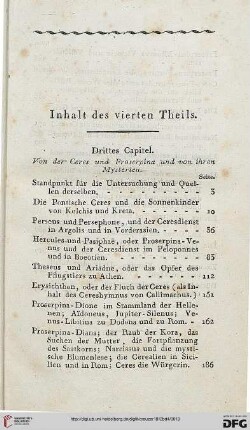 Inhalt des vierten Theils.
Drittes Capitel.
Von der Ceres und Proserpina und von ihren
Mysterien.
Seite.
Standpunkt für die Untersuchung und Quel-
len derselben. - - - - - - - - 3
Die Pontische Ceres und die Sonnenkinder
von Kolchis und Kreta. - - - - - 10
Perseus und Persephone, und der Ceresdienst
in Argolis und in Vorderasien. - - - 56
Hercules und Pasiphaë, oder Proserpina-Ve-
nus und der Ceresdienst im Peloponnes
und in Boeotien. - - - - - - - 85
Theseus und Ariadne, oder das Opfer des
Pflugstiers zu Athen. - - - - - - 112
Erysichthon, oder der Fluch der Ceres (als In-
halt des Cereshymnus von Callimachus.) 151
Proserpina-Dione im Stammland der Helle-
nen; Aïdoneus, Jupiter-Silenus; Ve-
nus-Libitina zu Dodona und zu Rom. - 162
Proserpina-Diana; der Raub der Kora, das
Suchen der Mutter, die Fortpflanzung
des Saatkorns; Narcissus und die mysti-
sche Blumenlese; die Cerealien in Sici-
lien und in Rom; Ceres die Würgerin. 186